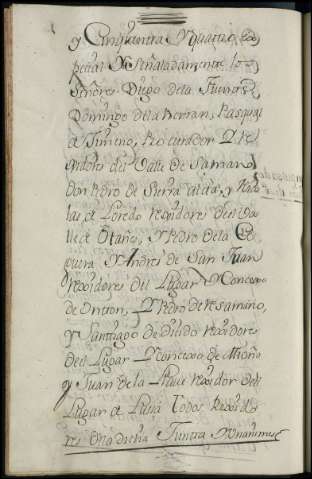 y Cinquenta y quatro
y Señaladamente los
Señores Diego dela Fuente
Domingo dela herran, Pasqual
de Ximeno, Procurador y Re
gidores del Valle de Saman
don Pedro de Sierra alta, y
las de Loredo rexidores del Va
lle de Otañes, y Pedro dela
y Andres de San Juan
Rexidores del Lugar y Concexo
de Onton, y Pedro de resamino,
y Santiago de rexidores
del Lugar y Concexo de Mioño
y Juan de la Llave rexidor del
Lugar de Lusa Todos rexido
res en dicha Junta y Unanimes